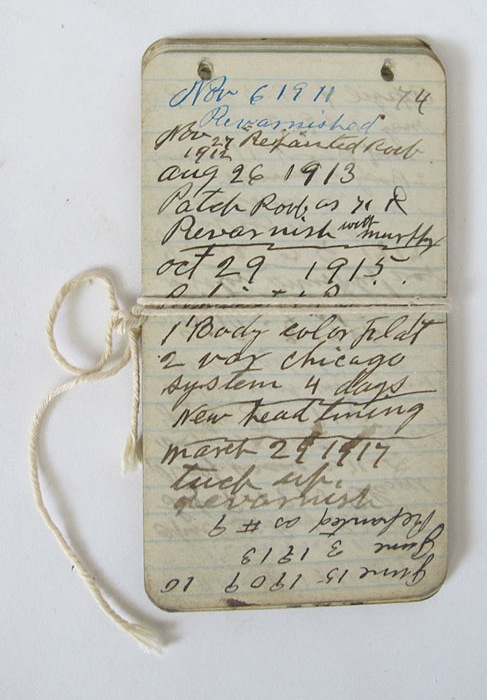 Nov 6 1911 74
Revarnished
Nov 27 Repainted Roof
1912
aug 26 1913
Patch Roof as
Revarnish with murphy
oct 29 1915.
1 Body color flat
2 var chicago
system 4 days
New head lining
march 29 1917
tuch up.
revarnish
Repainted as # 9
June 3 1913
June 15 1909 10